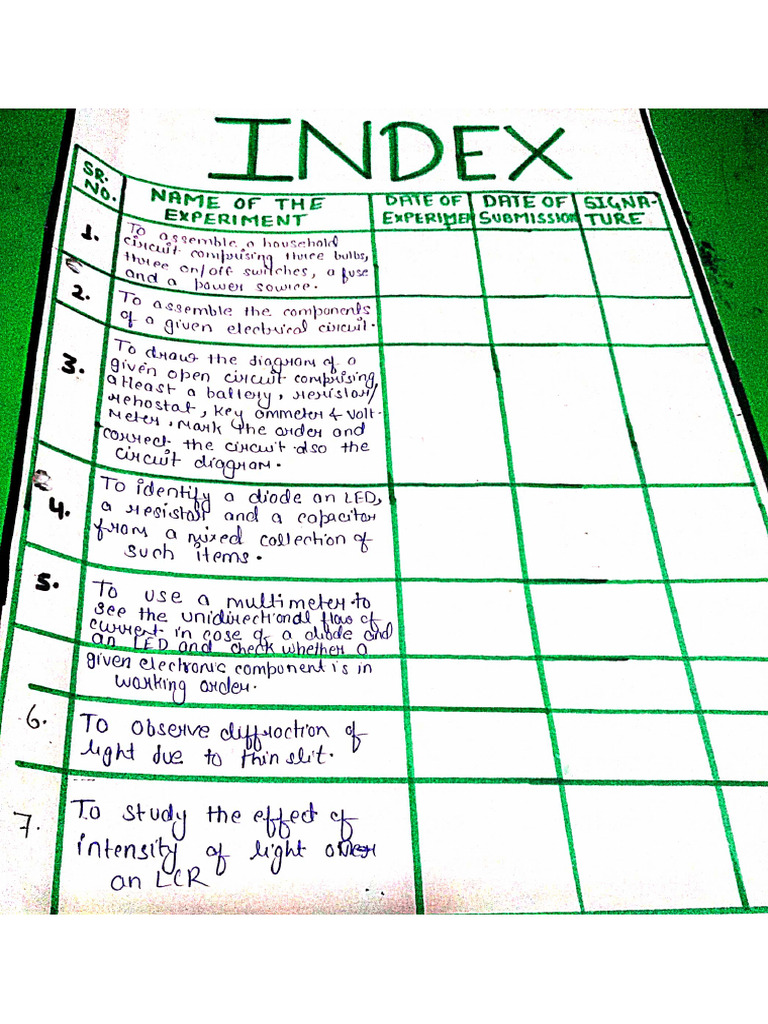 INDEX
SR. NO.
NAME OF THE EXPERIMENT
DATE OF EXPERIMEN
DATE OF SUBMISSION
SIGNA-TURE
1.
To assemble a household
circuit comprising three bulbs,
three on/off switches, a fuse
and a power source.
2.
To assemble the components
of a given electrical circuit.
3.
To draw the diagram of a
given open circuit comprising
atleast a battery, resistor/
rehostat, key ammeter & volt-
meter, mark the order and
correct the circuit also the
circuit diagram.
4.
To identify a diode an LED,
a resistor and a capacitor
from a mixed collection of
such items.
5.
To use a multimeter to
see the unidirectional flow of
current in case of a diode and
an LED and check whether a
given electronic component is in
working order.
6.
To observe diffraction of
light due to thin slit.
7.
To study the effect of
intensity of light over
an LCR